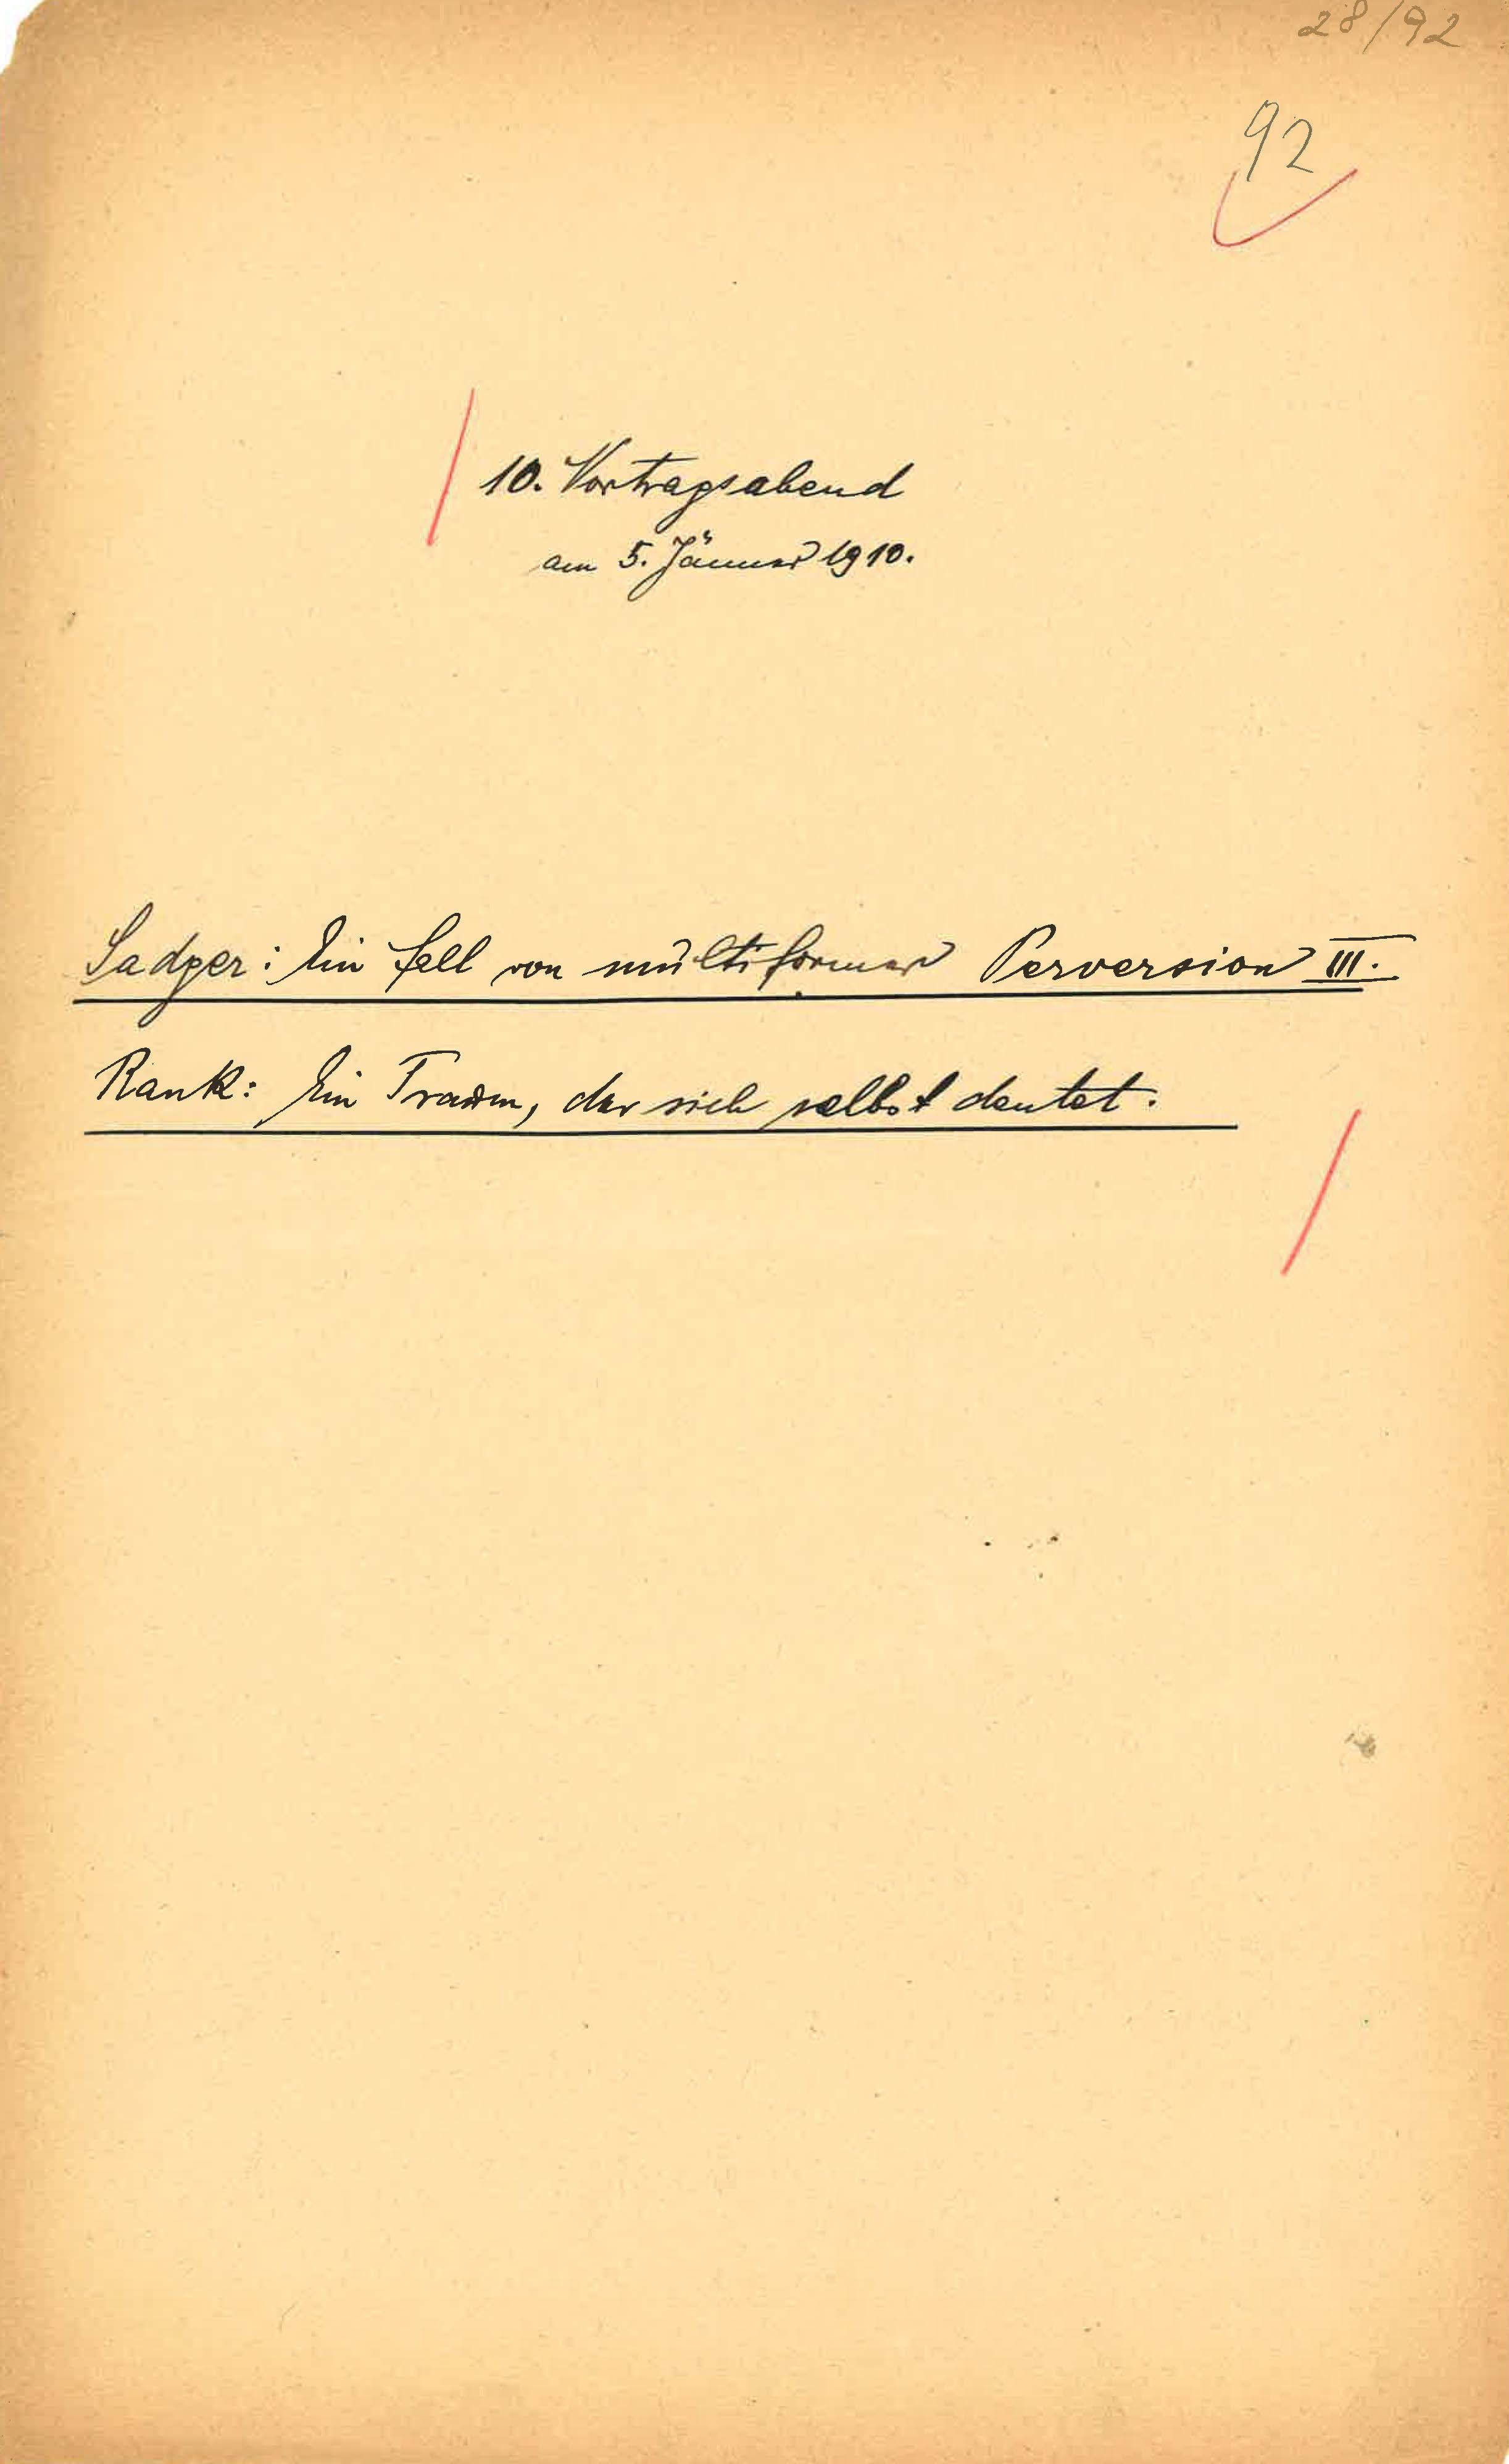 28/92
92
10. Vortragsabend
am 5. Jänner 1910.
Sadger: Ein Fall von multiformer Perversion III.
Rank: Ein Traum, der sich selbst deutet.